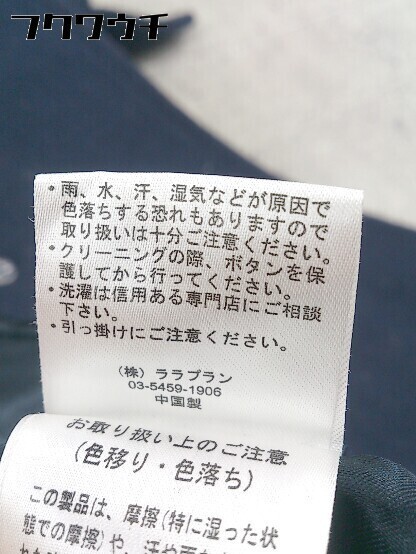 フクワウチ
・雨、水、汗、湿気などが原因で
色落ちする恐れもありますので
取り扱いは十分ご注意ください。
・クリーニングの際、ボタンを保
護してから行ってください。
・洗濯は信用ある専門店にご相談
下さい。
・引っ掛けにご注意ください。
(株) ララプラン
03-5459-1906
中国製
お取り扱い上のご注意
(色移り・色落ち)
この製品は、摩擦(特に湿った状
態での摩擦)や、汗や雨